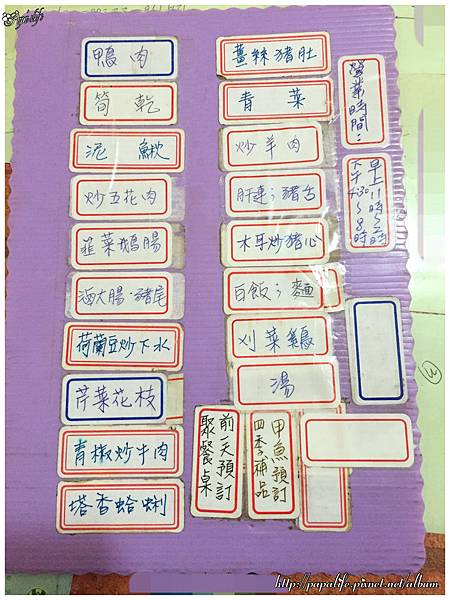 Papalife
鴨肉
筍乾
泥鰍
炒五花肉
韮菜鵝腸
滷大腸、豬尾
荷蘭豆炒下水
芹菜花枝
青椒炒牛肉
塔香蛤蜊
薑絲豬肚
青菜
炒羊肉
肝連；豬舌
木耳炒豬心
白飯；麵
刈菜雞
湯
前一天預訂
聚餐桌
甲魚預訂
四季補品
營業時間：
早上11時～2時
下午4:30～8時
http://papalife.pixnet.net/album